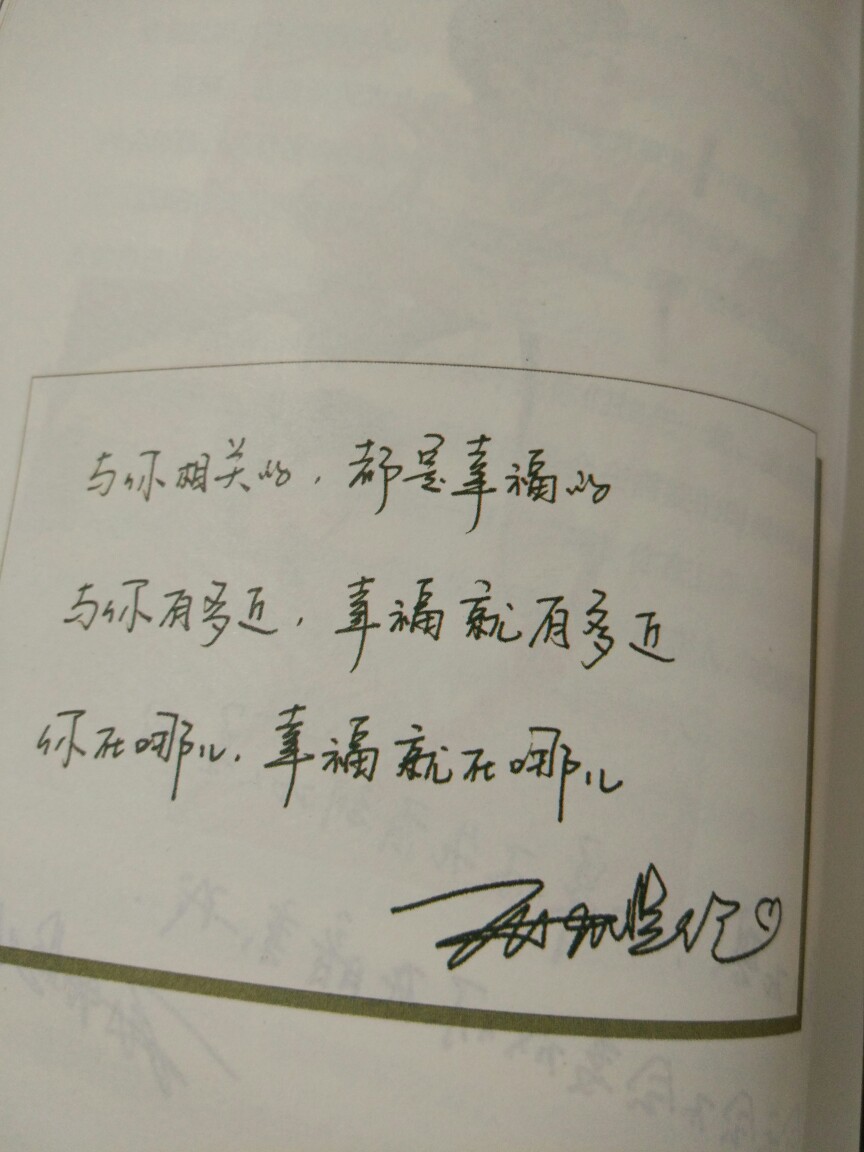 与你相关的,都是幸福的
与你有多近,幸福就有多近
你在哪儿,幸福就在哪儿